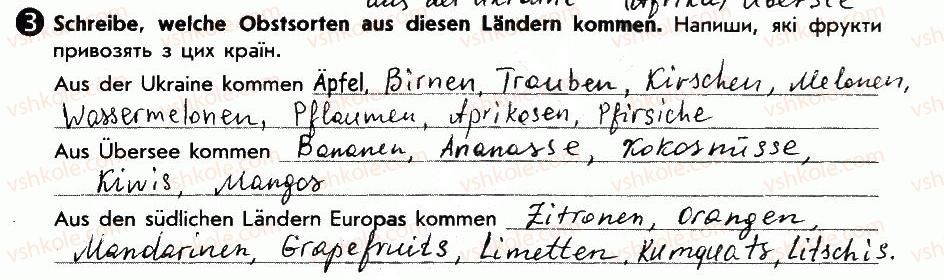 aus der Ukraine (Afrika) Übersee
3 Schreibe, welche Obstsorten aus diesen Ländern kommen. Напиши, які фрукти
привозять з цих країн.
Aus der Ukraine kommen Äpfel, Birnen, Trauben, Kirschen, Melonen,
Wassermelonen, Pflaumen, Aprikosen, Pfirsiche
Aus Übersee kommen Bananen, Ananasse, Kokosnüsse,
Kiwis, Mangos
Aus den südlichen Ländern Europas kommen Zitronen, Orangen,
Mandarinen, Grapefruits, Limetten, Kumquats, Litschis.